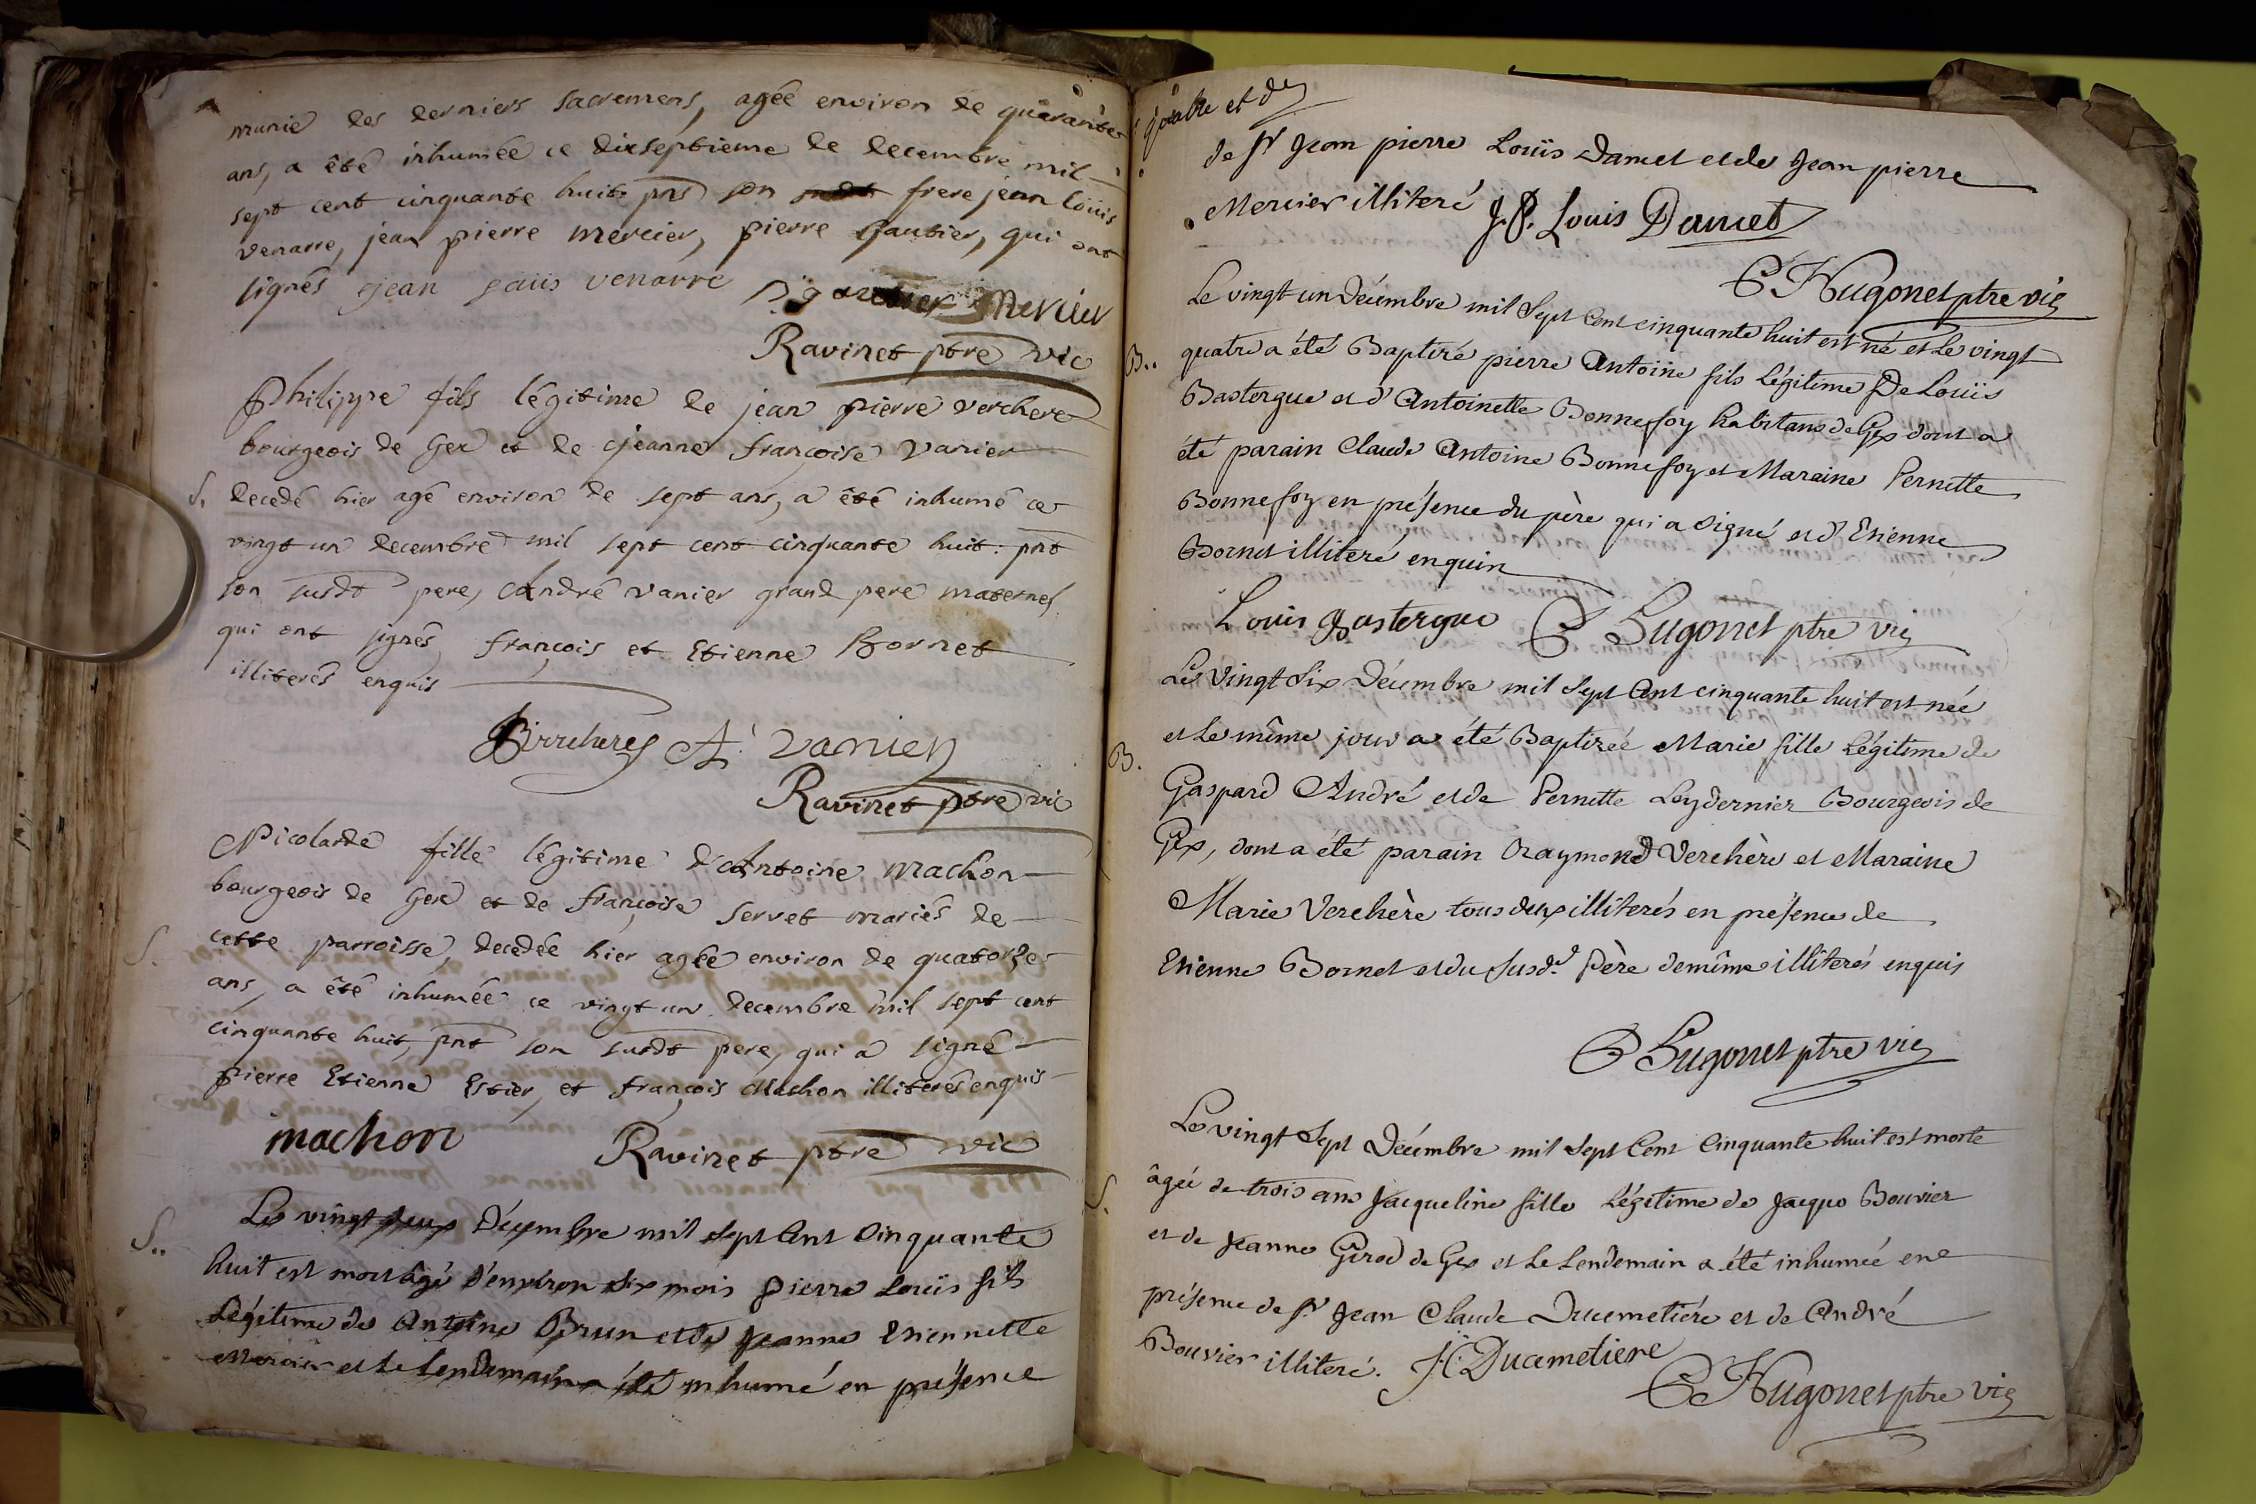 munie des derniers sacremens, agée environ de quarante
ans, a êté inhumée ce dixseptieme de decembre mil
sept cent cinquante huit: pnt son frere jean loüis
venarre, jean pierre mercier, pierre gautier, qui ont
signés jean louis venarre p: gautier Mercier
Ravinet ptre vic
Philippe fils légitime de jean pierre verchere
bourgeois de Gex et de jeanne françoise Vanier
S. decedé hier agé environ de sept ans, a êté inhumé ce
vingt un decembre mil sept cent cinquante huit: pnt
son susdt pere, André vanier grand pere maternel
qui ont signés, françois et Etienne Bornet
illiterés enquis
Verchere A: vanier
Ravinet ptre vic
Nicolarde fille légitime d'Antoine machon
bourgeois de Gex et de françoise servet mariés de
S. cette parroisse, decedée hier agée environ de quatorze
ans, a êté inhumée ce vingt un decembre mil sept cent
cinquante huit, pnt son susdt pere, qui a signé
pierre Etienne Estier, et françois Machon illiterés enquis
machon Ravinet ptre vic
S.. Le vingt deux Décembre mil sept Cent Cinquante
huit est mort âgé d'environ six mois pierre Loüis fils
Légitime de Antoine Brun et de Jeanne Etiennette
Mercier et le Lendemain a été inhumé en présence
quatre et de
de Sr Jean pierre Loüis Dancet et de Jean pierre
Mercier illiteré J. P. Louis Dancet
C Hugonet ptre vic
Le vingt un Décembre mil Sept Cent cinquante huit est né et Le vingt
B.. quatre a été Baptizé pierre Antoine fils Légitime De Loüis
Bastergue et d'Antoinette Bonnefoy habitans de Gex dont a
été parain Claude Antoine Bonnefoy et Maraine Pernette
Bonnefoy en présence du père qui a signé et d'Etienne
Bornet illiteré enquis
Louis Bastergue C Hugonet ptre vic
Le Vingt Six Décembre mil Sept Cent cinquante huit est née
et Le même jour a été Baptizée Marie fille Légitime de
B. Gaspard André et de Pernette Leydernier Bourgeois de
Gex, dont a été parain Raymond Verchère et Maraine
Marie Verchère tous deux illiterés en présence de
Etienne Bornet et du susd.t Père de même illiterés enquis
C Hugonet ptre vic
Le vingt Sept Décembre mil Sept Cent Cinquante huit est morte
S. âgée de trois ans Jacqueline fille Légitime de Jacque Bouvier
et de Jeanne Girod de Gex et Le Lendemain a été inhumée en
présence de Sr Jean Claude Ducimetiére et de André
Bouvier illiteré. J: C: Ducimetiere
C Hugonet ptre vic